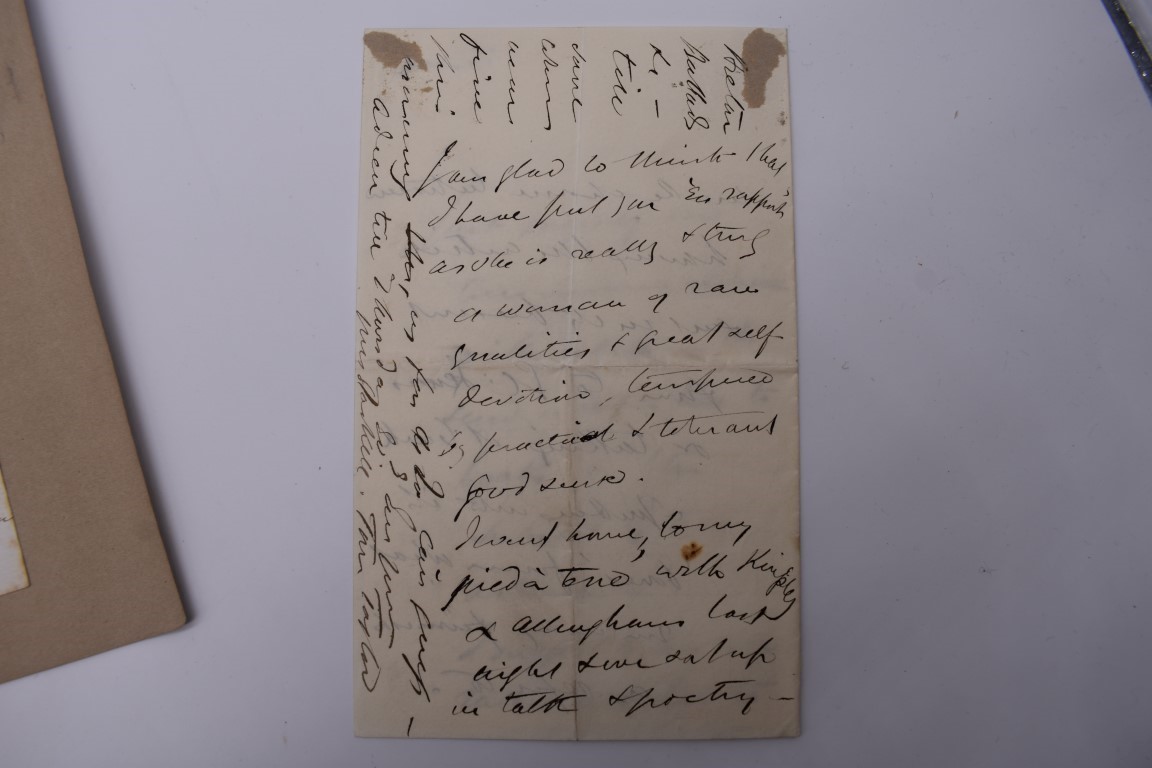 I am glad to think that
I have put you "En rapport"
as she is really & truly
a woman of rare
qualities & great self
devotion, tempered
by practical & tolerant
good sense.
I went home, to my
pied à terre, with Kingsley
& Allingham last
night & we sat up
in talk & poetry —
Breton
Ballads
&c —
till
when
near
five
this
morning
till Thursday
Tom Taylor